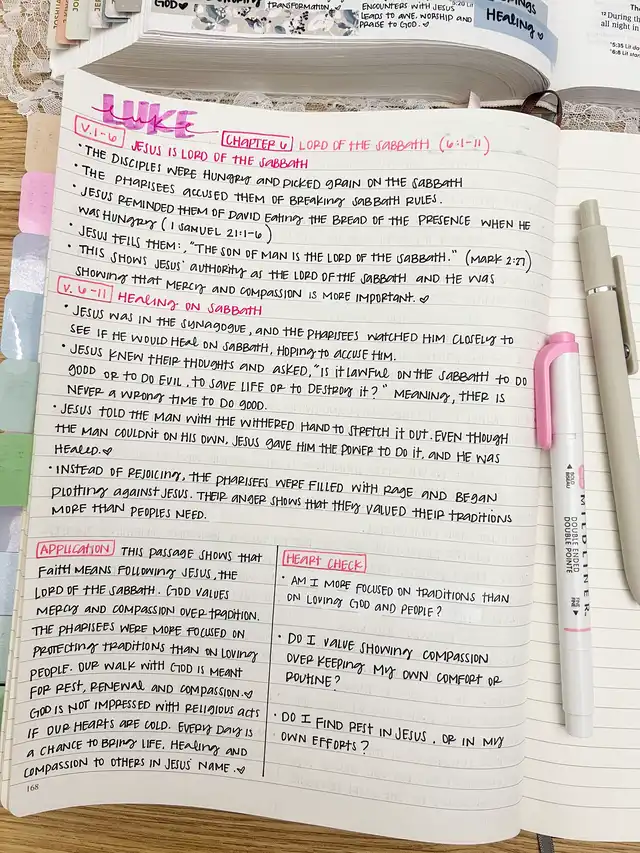 GOD♥
TRANSFORMATION.♡
ENCOUNTERS WITH JESUS
LEADS TO AWE, WORSHIP AND
PRAISE TO GOD.♡
HEALING
¹² During th
all night in
*5:35 Lit
*6:8 Lit
LUKE
V.1-6 CHAPTER 6 LORD OF THE SABBATH (6:1-11)
JESUS IS LORD OF THE SABBATH
• THE DISCIPLES WERE HUNGRY AND PICKED GRAIN ON THE SABBATH
• THE PHARISEES ACCUSED THEM OF BREAKING SABBATH RULES.
• JESUS REMINDED THEM OF DAVID EATING THE BREAD OF THE PRESENCE WHEN HE
WAS HUNGRY (1 SAMUEL 21:1-6)
• JESUS TELLS THEM:, "THE SON OF MAN IS THE LORD OF THE SABBATH." (MARK 2:27)
• THIS SHOWS JESUS' AUTHORITY AS THE LORD OF THE SABBATH AND HE WAS
SHOWING THAT MERCY AND COMPASSION IS MORE IMPORTANT.♡
V. 6-11 HEALING ON SABBATH
• JESUS WAS IN THE SYNAGOGUE, AND THE PHARISEES WATCHED HIM CLOSELY TO
SEE IF HE WOULD HEAL ON SABBATH, HOPING TO ACCUSE HIM.
• JESUS KNEW THEIR THOUGHTS AND ASKED, "IS IT LAWFUL ON THE SABBATH TO DO
GOOD OR TO DO EVIL, TO SAVE LIFE OR TO DESTROY IT?" MEANING, THER IS
NEVER A WRONG TIME TO DO GOOD.
• JESUS TOLD THE MAN WITH THE WITHERED HAND TO STRETCH IT OUT. EVEN THOUGH
THE MAN COULDN'T ON HIS OWN, JESUS GAVE HIM THE POWER TO DO IT, AND HE WAS
HEALED.♡
• INSTEAD OF REJOICING, THE PHARISEES WERE FILLED WITH RAGE AND BEGAN
PLOTTING AGAINST JESUS. THEIR ANGER SHOWS THAT THEY VALUED THEIR TRADITIONS
MORE THAN PEOPLES NEED.
APPLICATION THIS PASSAGE SHOWS THAT
FAITH MEANS FOLLOWING JESUS, THE
LORD OF THE SABBATH. GOD VALUES
MERCY AND COMPASSION OVER TRADITION.
THE PHARISEES WERE MORE FOCUSED ON
PROTECTING TRADITIONS THAN ON LOVING
PEOPLE. OUR WALK WITH GOD IS MEANT
FOR REST, RENEWAL AND COMPASSION.♡
GOD IS NOT IMPRESSED WITH RELIGIOUS ACTS
IF OUR HEARTS ARE COLD. EVERY DAY IS
A CHANCE TO BRING LIFE, HEALING AND
COMPASSION TO OTHERS IN JESUS' NAME.♡
HEART CHECK
• AM I MORE FOCUSED ON TRADITIONS THAN
ON LOVING GOD AND PEOPLE?
• DO I VALUE SHOWING COMPASSION
OVER KEEPING MY OWN COMFORT OR
ROUTINE?
• DO I FIND REST IN JESUS, OR IN MY
OWN EFFORTS?
168
MILDLINER.
DOUBLE ENDED
DOUBLE POINTE